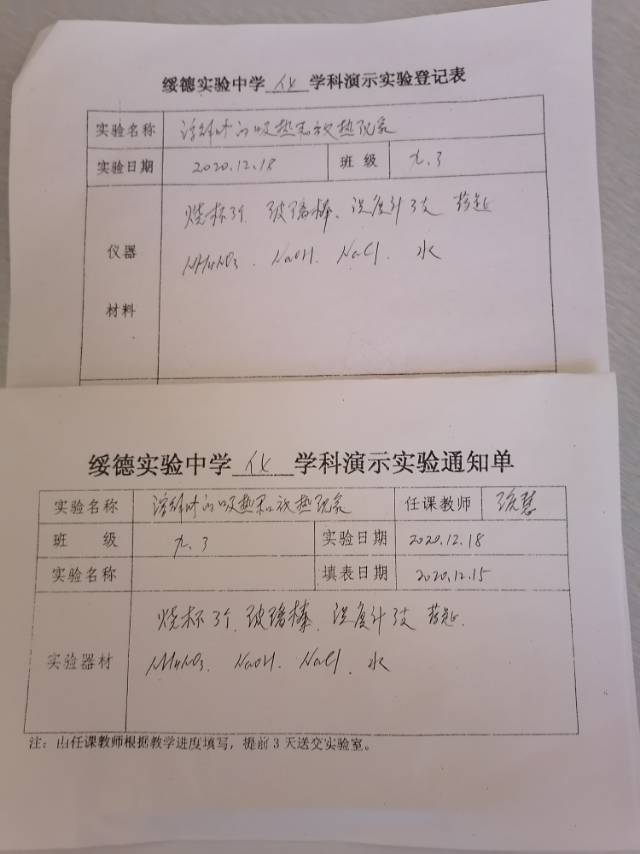 绥德实验中学 化 学科演示实验登记表
实验名称 溶解时的吸热和放热现象
实验日期 2020.12.18 班级 九.3
仪器
材料
烧杯3个 玻璃棒、温度计3支 药匙
NH4NO3 、 NaOH、 NaCl、 水
绥德实验中学 化 学科演示实验通知单
实验名称 溶解时的吸热和放热现象 任课教师
班 级 九.3 实验日期 2020.12.18
实验名称 填表日期 2020.12.15
实验器材
烧杯3个、玻璃棒、温度计3支 药匙
NH4NO3、 NaOH、 NaCl、 水
注：由任课教师根据教学进度填写，提前3天送交实验室。